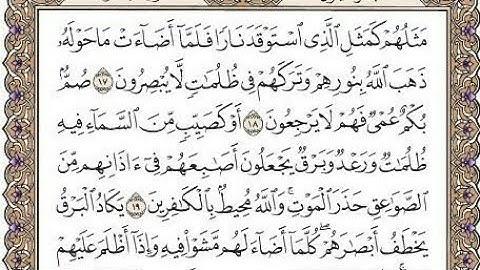 مَثَلُهُمْ كَمَثَلِ ٱلَّذِى ٱسْتَوْقَدَ نَارًا فَلَمَّآ أَضَآءَتْ مَا حَوْلَهُۥ
ذَهَبَ ٱللَّهُ بِنُورِهِمْ وَتَرَكَهُمْ فِى ظُلُمَٰتٍ لَّا يُبْصِرُونَ ١٧ صُمٌّۢ
بُكْمٌ عُمْىٌ فَهُمْ لَا يَرْجِعُونَ ١٨ أَوْ كَصَيِّبٍ مِّنَ ٱلسَّمَآءِ فِيهِ
ظُلُمَٰتٌ وَرَعْدٌ وَبَرْقٌ يَجْعَلُونَ أَصَٰبِعَهُمْ فِىٓ ءَاذَانِهِم مِّنَ
ٱلصَّوَٰعِقِ حَذَرَ ٱلْمَوْتِ ۚ وَٱللَّهُ مُحِيطٌۢ بِٱلْكَٰفِرِينَ ١٩ يَكَادُ ٱلْبَرْقُ
يَخْطَفُ أَبْصَٰرَهُمْ ۖ كُلَّمَآ أَضَآءَ لَهُم مَّشَوْا۟ فِيهِ وَإِذَآ أَظْلَمَ عَلَيْهِمْ